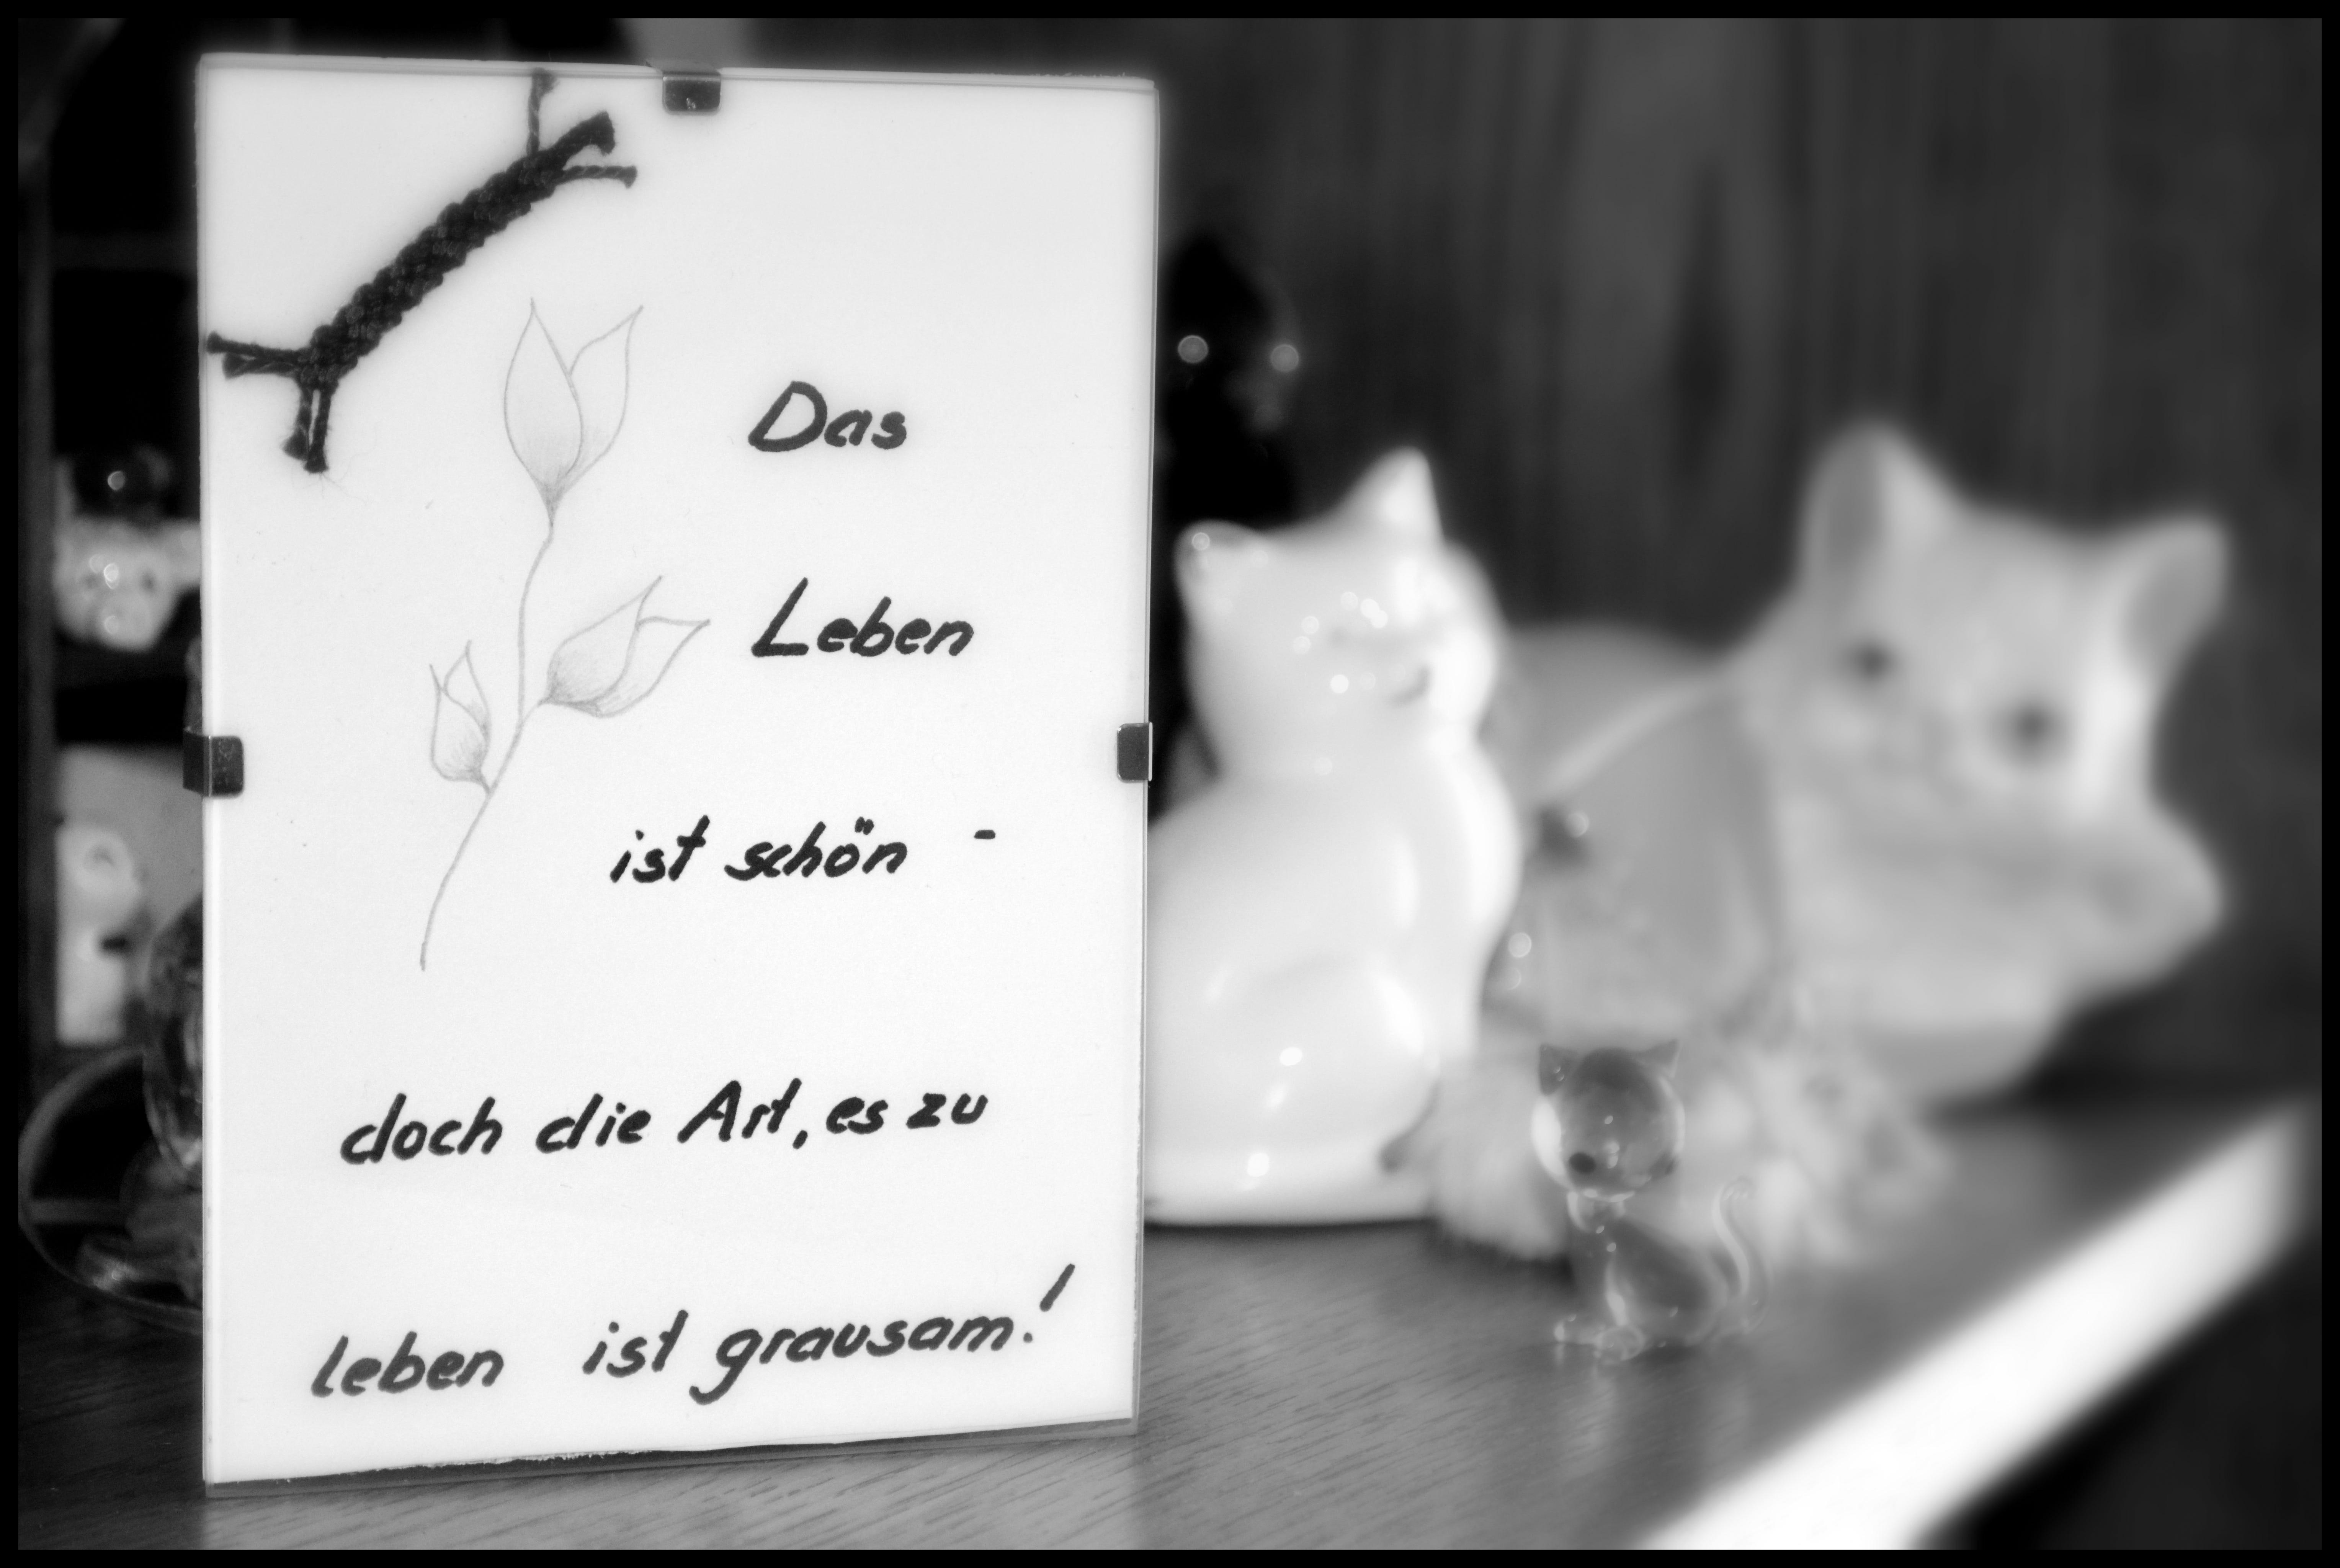 Das
Leben
ist schön -
doch die Art, es zu
leben ist grausam!